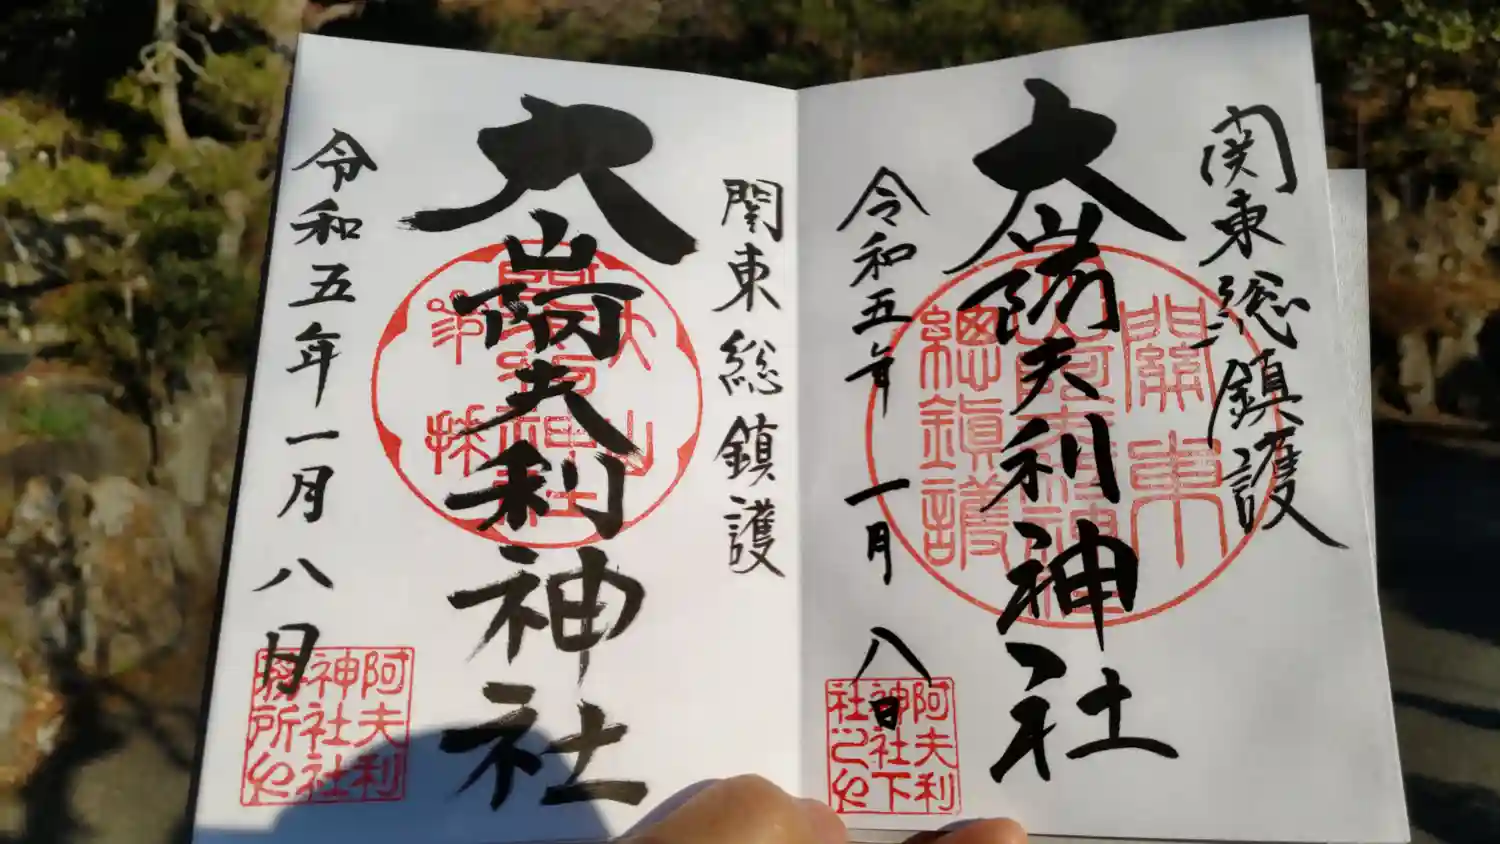 関東総鎮護
大山阿夫利神社
令和五年一月八日
關東
總鎮護
阿夫利
神社下
社之印
関東総鎮護
大山阿夫利神社
令和五年一月八日
大山
阿夫利
神社
務所